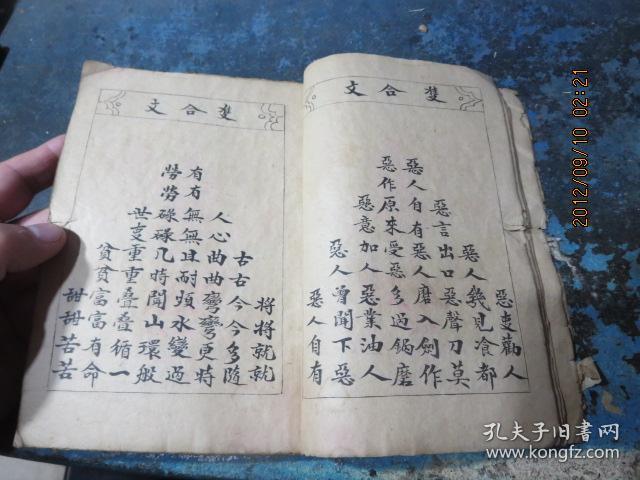 雙合文
惡叓勸人
惡人幾見飡都
惡言出口惡聲刀莫
惡人自有惡人磨入劍作
惡作原來受惡多過鍋磨
惡意加人惡業油人
惡人曾聞下惡
惡人自有
雙合文
將將就就
古古今今多隨
人心曲曲彎彎更時
有有無無且耐煩水變過
勞勞碌碌几時閒山環般
世叓重重叠叠循一
貧貧富富有命
甜甜苦苦
2012/09/10 02:21
孔夫子旧書网